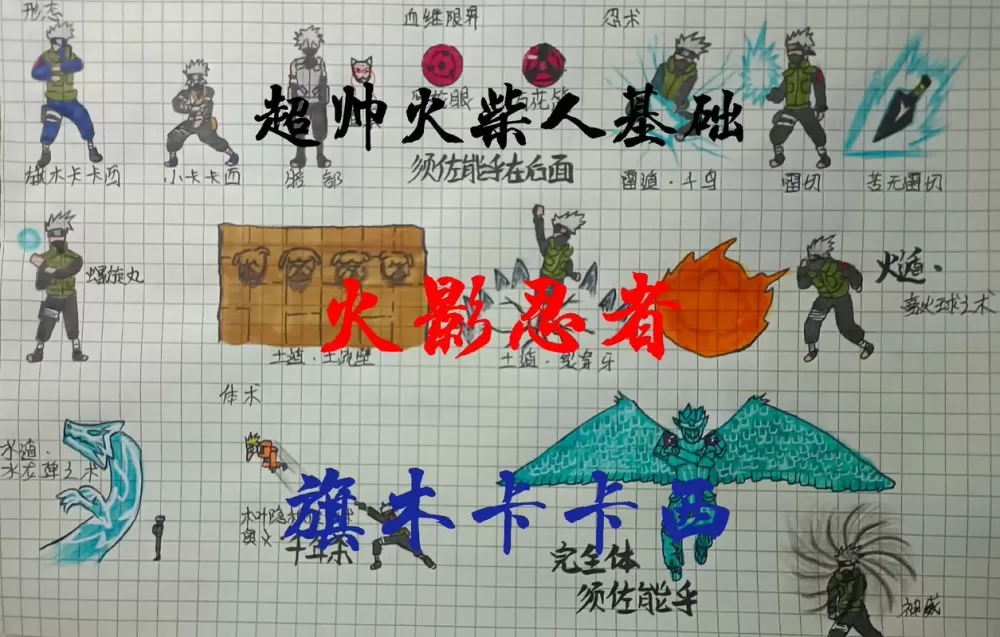 形态
血继限界
忍术
超帅火柴人基础
旗木卡卡西
小卡卡西
暗部
须佐能乎在后面
雷遁·千鸟
雷切
苦无雷切
螺旋丸
火遁·
豪火球之术
火影忍者
土遁·土流壁
土遁·裂穿牙
体术
水遁·
水龙弹之术
旗木卡卡西
木叶隐
奥义
千年杀
完全体
须佐能乎
神威